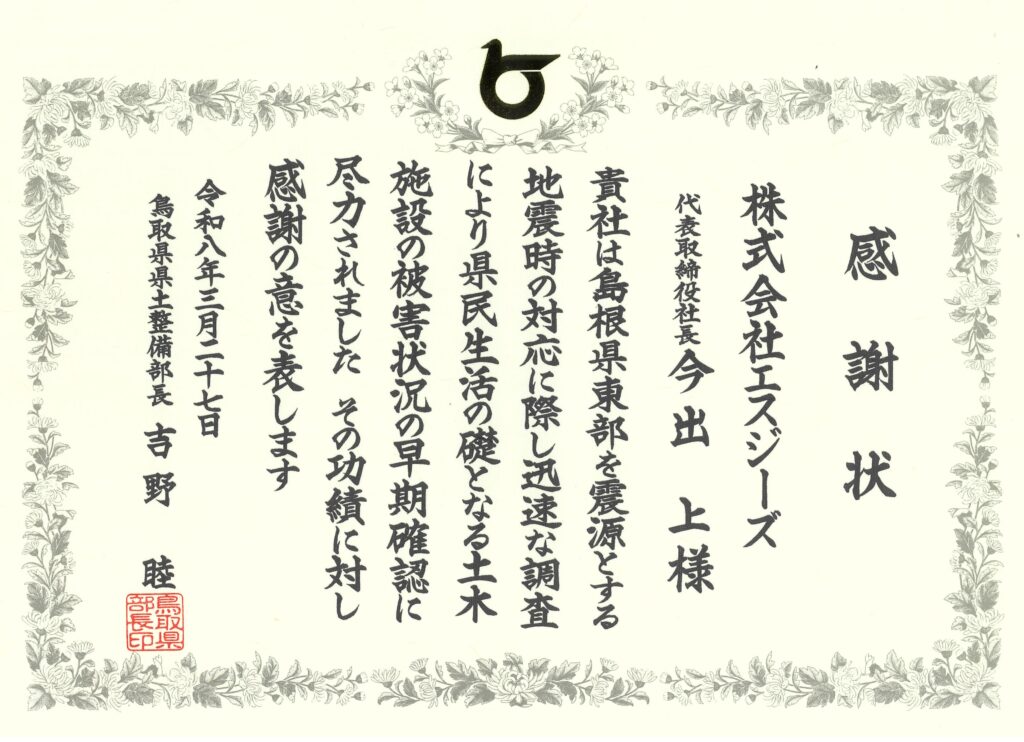 感謝状
株式会社エスジーズ
代表取締役社長 今出 上様
貴社は島根県東部を震源とする
地震時の対応に際し迅速な調査
により県民生活の礎となる土木
施設の被害状況の早期確認に
尽力されました その功績に対し
感謝の意を表します
令和八年三月二十七日
鳥取県県土整備部長 吉野 睦
鳥取県
部長印